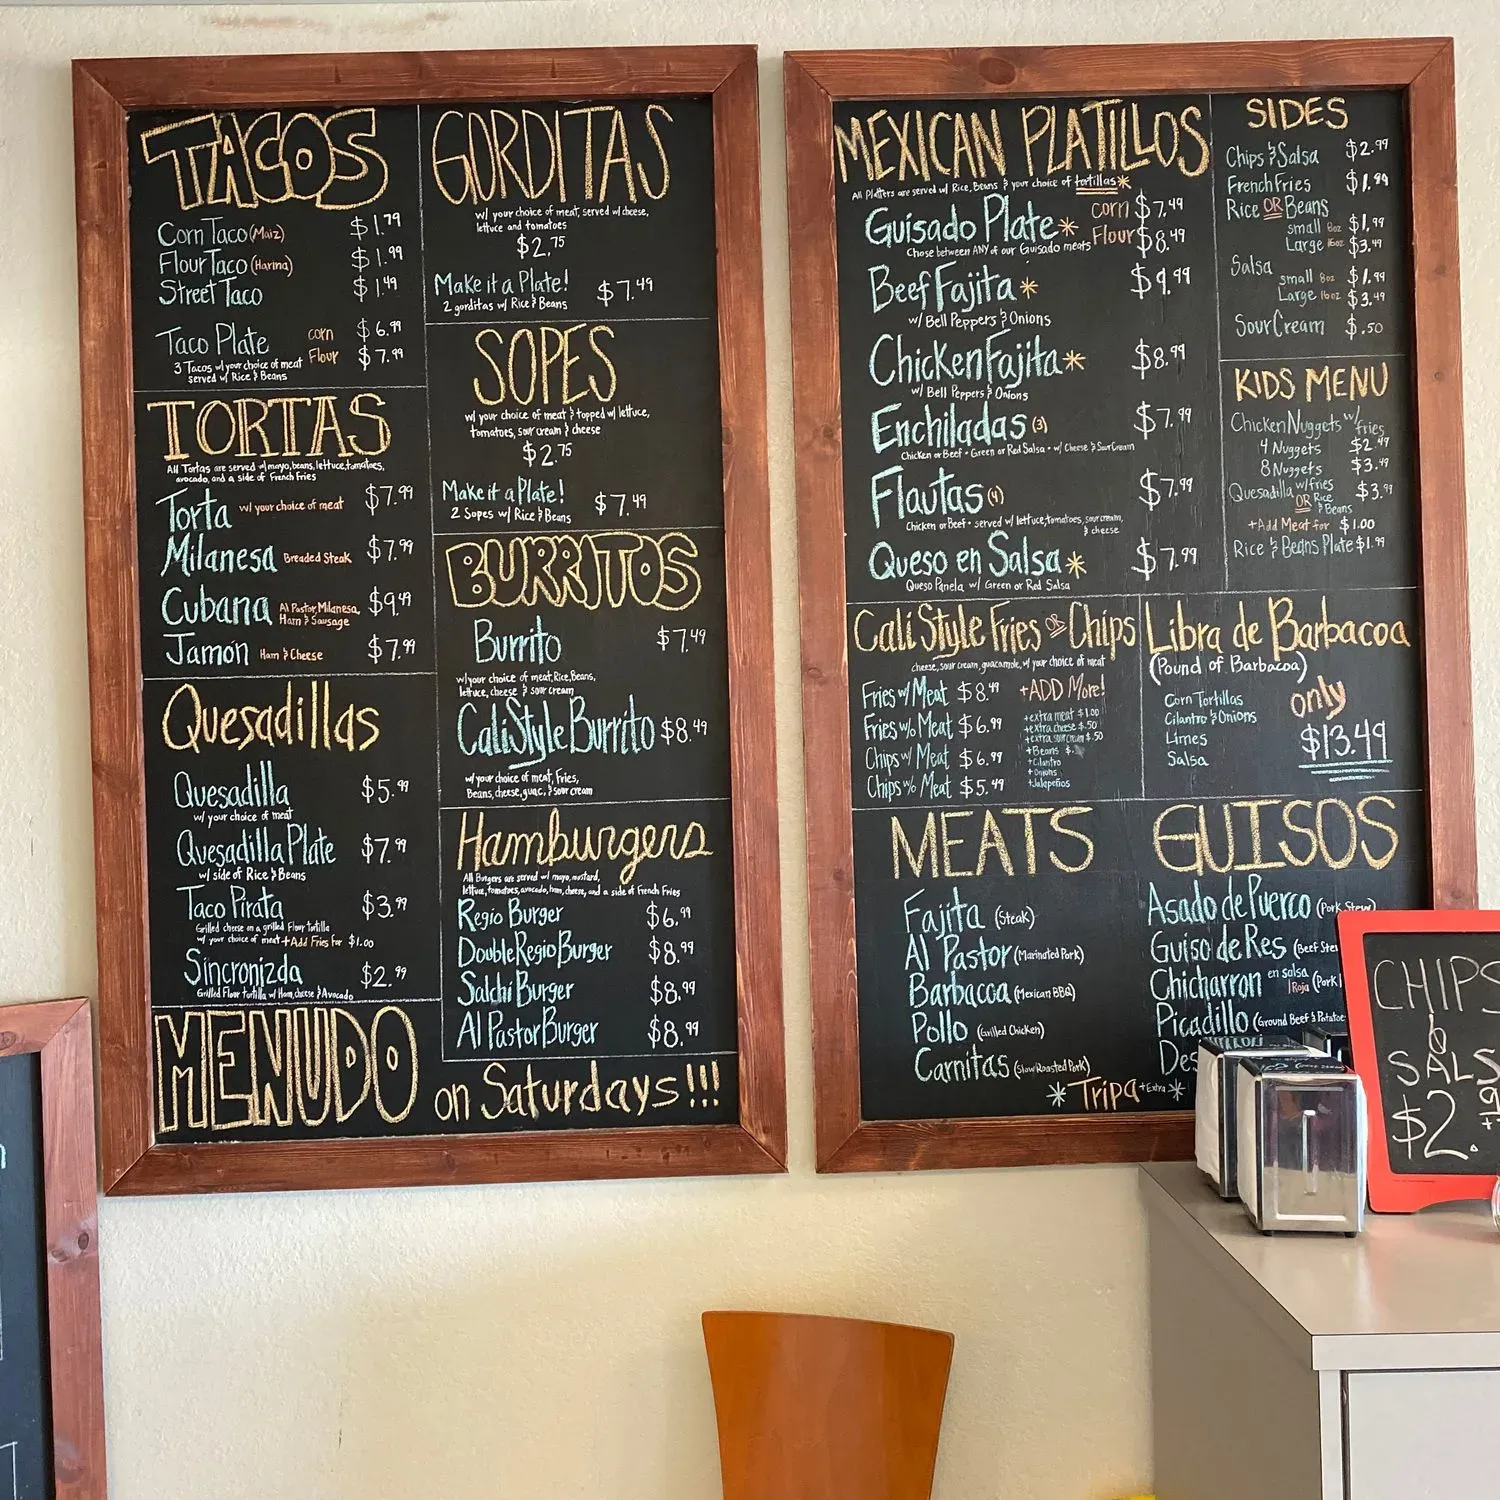 TACOS
Corn Taco (Maiz) $1.79
Flour Taco (Harina) $1.99
Street Taco $1.49
Taco Plate corn $6.99
3 Tacos w/ your choice of meat Flour $7.99
served w/ Rice & Beans
TORTAS
All Tortas are served w/ mayo, beans, lettuce, tomatoes,
avocado, and a side of French Fries
Torta w/ your choice of meat $7.99
Milanesa Breaded Steak $7.99
Cubana Al Pastor, Milanesa, $9.49
Ham & Sausage
Jamón Ham & Cheese $7.99
Quesadillas
Quesadilla $5.99
w/ your choice of meat
Quesadilla Plate $7.99
w/ side of Rice & Beans
Taco Pirata $3.99
Grilled cheese on a grilled Flour tortilla
w/ your choice of meat +Add Fries for $1.00
Sincronizda $2.99
Grilled Flour tortilla w/ Ham, cheese & Avocado
MENUDO on Saturdays!!!
GORDITAS
w/ your choice of meat, served w/ cheese,
lettuce and tomatoes
$2.75
Make it a Plate! $7.49
2 gorditas w/ Rice & Beans
SOPES
w/ your choice of meat & topped w/ lettuce,
tomatoes, sour cream & cheese
$2.75
Make it a Plate! $7.49
2 Sopes w/ Rice & Beans
BURRITOS
Burrito $7.49
w/ your choice of meat, Rice, Beans,
lettuce, cheese & sour cream
Cali Style Burrito $8.49
w/ your choice of meat, Fries,
Beans, cheese, guac, & sour cream
Hamburgers
All Burgers are served w/ mayo, mustard,
lettuce, tomatoes, avocado, ham, cheese, and a side of French Fries
Regio Burger $6.99
Double Regio Burger $8.99
Salchi Burger $8.99
Al Pastor Burger $8.99
MEXICAN PLATILLOS
All Platters are served w/ Rice, Beans & your choice of tortillas*
Guisado Plate* corn $7.49
Chose between ANY of our Guisado meats Flour $8.49
Beef Fajita* $9.99
w/ Bell Peppers & Onions
Chicken Fajita* $8.99
w/ Bell Peppers & Onions
Enchiladas (3) $7.99
Chicken or Beef • Green or Red Salsa • w/ Cheese & Sour Cream
Flautas (4) $7.99
Chicken or Beef • served w/ lettuce, tomatoes, sour cream,
& cheese
Queso en Salsa* $7.99
Queso Panela w/ Green or Red Salsa
SIDES
Chips & Salsa $2.99
French Fries $1.99
Rice OR Beans
small 8oz $1.99
Large 16oz $3.49
Salsa
small 8oz $1.99
Large 16oz $3.49
Sour Cream $.50
KIDS MENU
Chicken Nuggets w/ fries
4 Nuggets $2.49
8 Nuggets $3.49
Quesadilla w/ fries $3.99
OR Rice
& Beans
+Add Meat for $1.00
Rice & Beans Plate $1.99
Cali Style Fries OR Chips
cheese, sour cream, guacamole, w/ your choice of meat
Fries w/ Meat $8.49
Fries w/o Meat $6.99
Chips w/ Meat $6.99
Chips w/o Meat $5.49
+ADD More!
+extra meat $1.00
+extra cheese $.50
+extra sour cream $.50
+Beans
+Cilantro
+Onions
+Jalepeños
Libra de Barbacoa
(Pound of Barbacoa)
Corn Tortillas
Cilantro & Onions
Limes
Salsa
only
$13.49
MEATS
Fajita (Steak)
Al Pastor (Marinated Pork)
Barbacoa (Mexican BBQ)
Pollo (Grilled Chicken)
Carnitas (Slow Roasted Pork)
*Tripa +Extra*
GUISOS
Asado de Puerco (Pork Stew)
Guiso de Res (Beef Stew
Chicharron en salsa Roja (Pork
Picadillo (Ground Beef & Potatoe
Des
CHIPS
&
SALS
$2.99